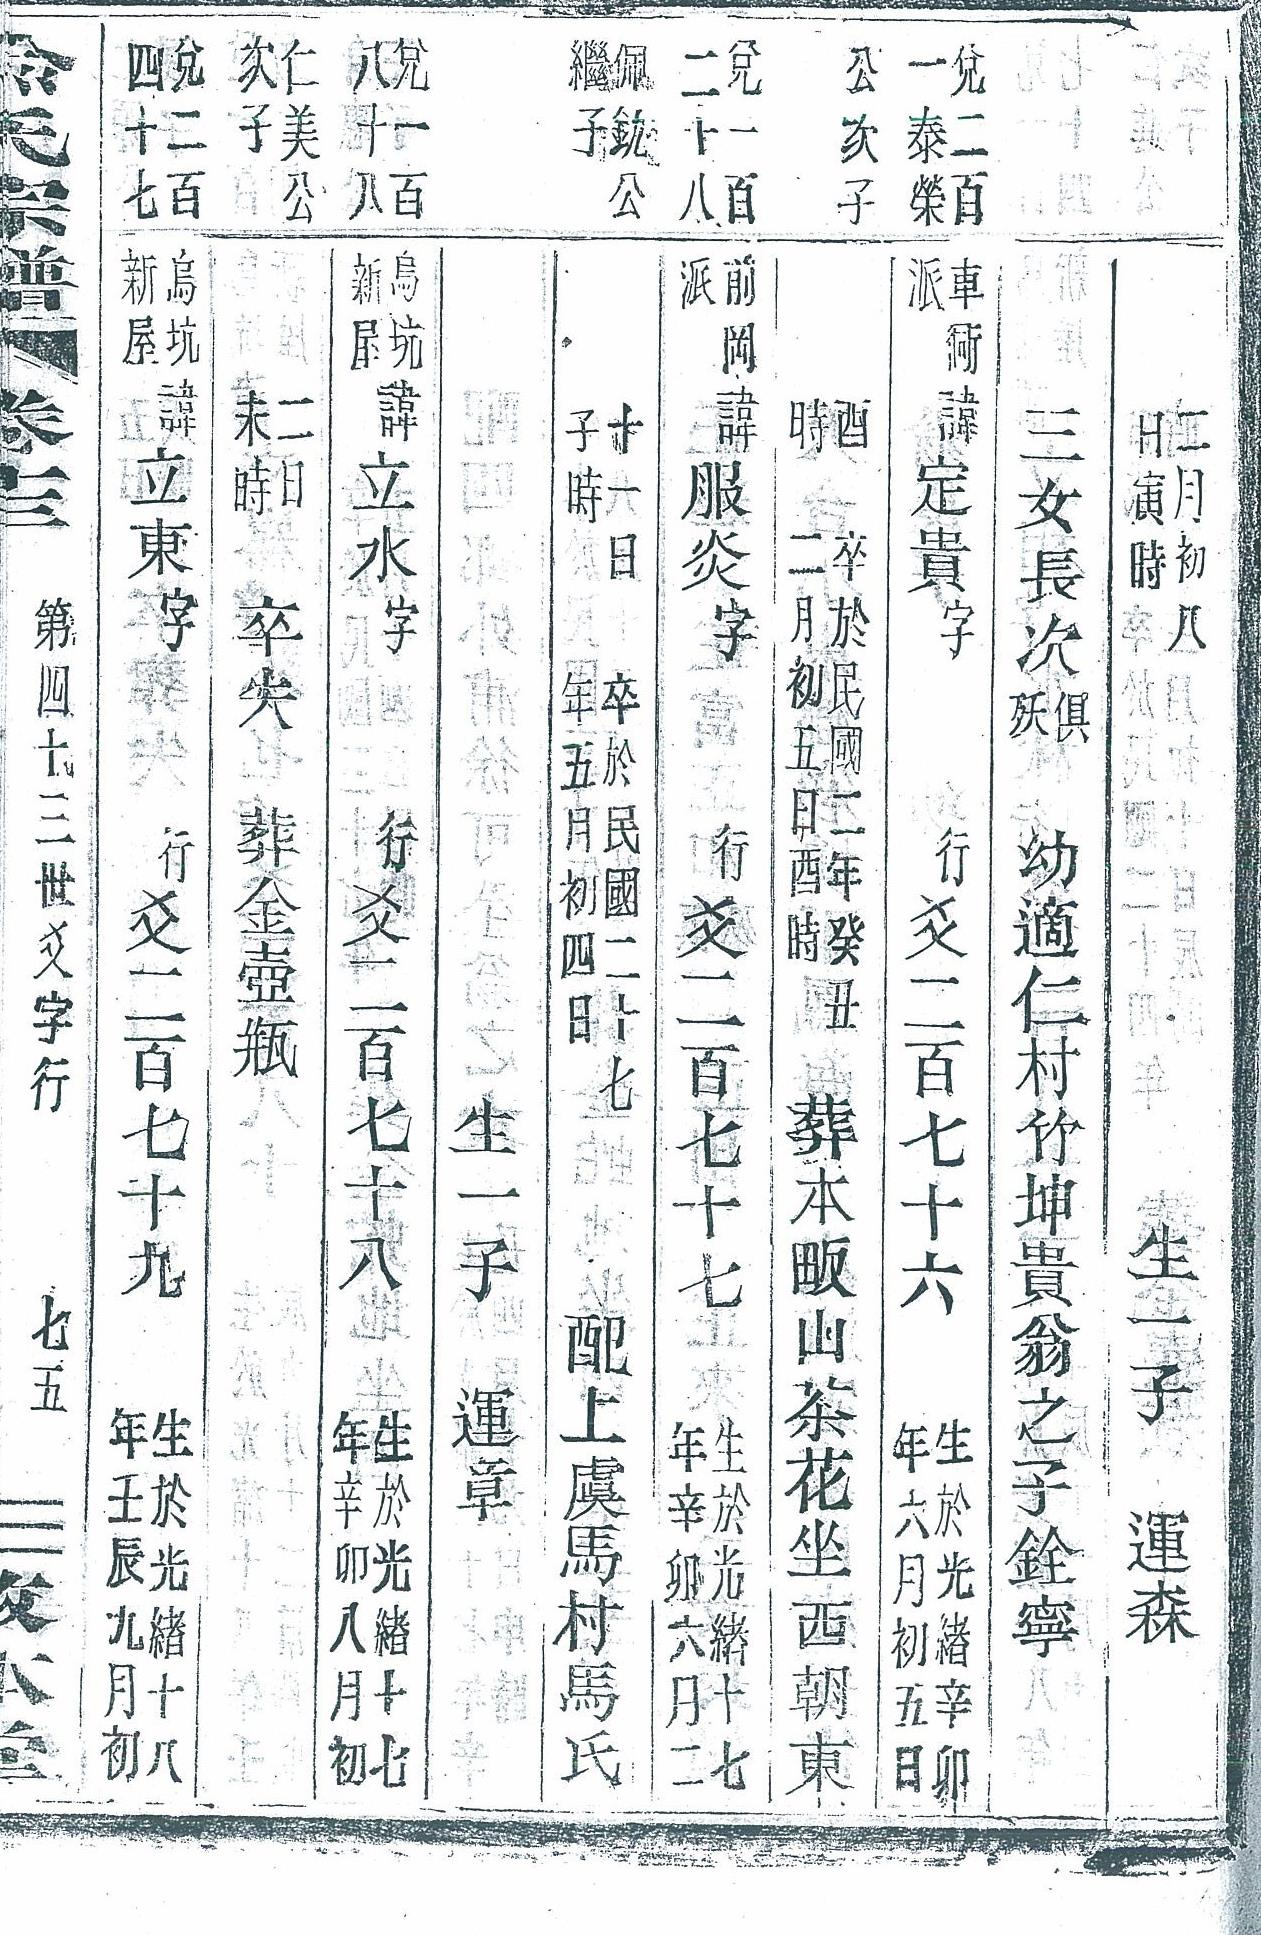 二月初八日寅時 生一子 運森
三女長次俱殀 幼適仁村竹坤貴翁之子銓寧
兌二百一泰榮
車衕派 諱定貴字 行爻二百七十六 生於光緒辛卯年六月初五日
公次子
酉時 卒於民國二年癸丑二月初五日酉時 葬本畈山茶花坐西朝東
兌一百二十八
前岡派 諱服炎字 行爻二百七十七 生於光緒十七年辛卯六月二
佩銃公繼子
十六日子時 卒於民國二十七年五月初四日 配上虞馬村馬氏
生一子 運章
兌一百八十八
烏坑新屋 諱立水字 行爻二百七十八 生於光緒十七年辛卯八月初
仁美公次子
二日未時 卒失 葬金壺瓶
兌二百四十七
烏坑新屋 諱立東字 行爻二百七十九 生於光緒十八年壬辰九月初
氏宗譜 卷三 第四十三世爻字行 七五 本堂